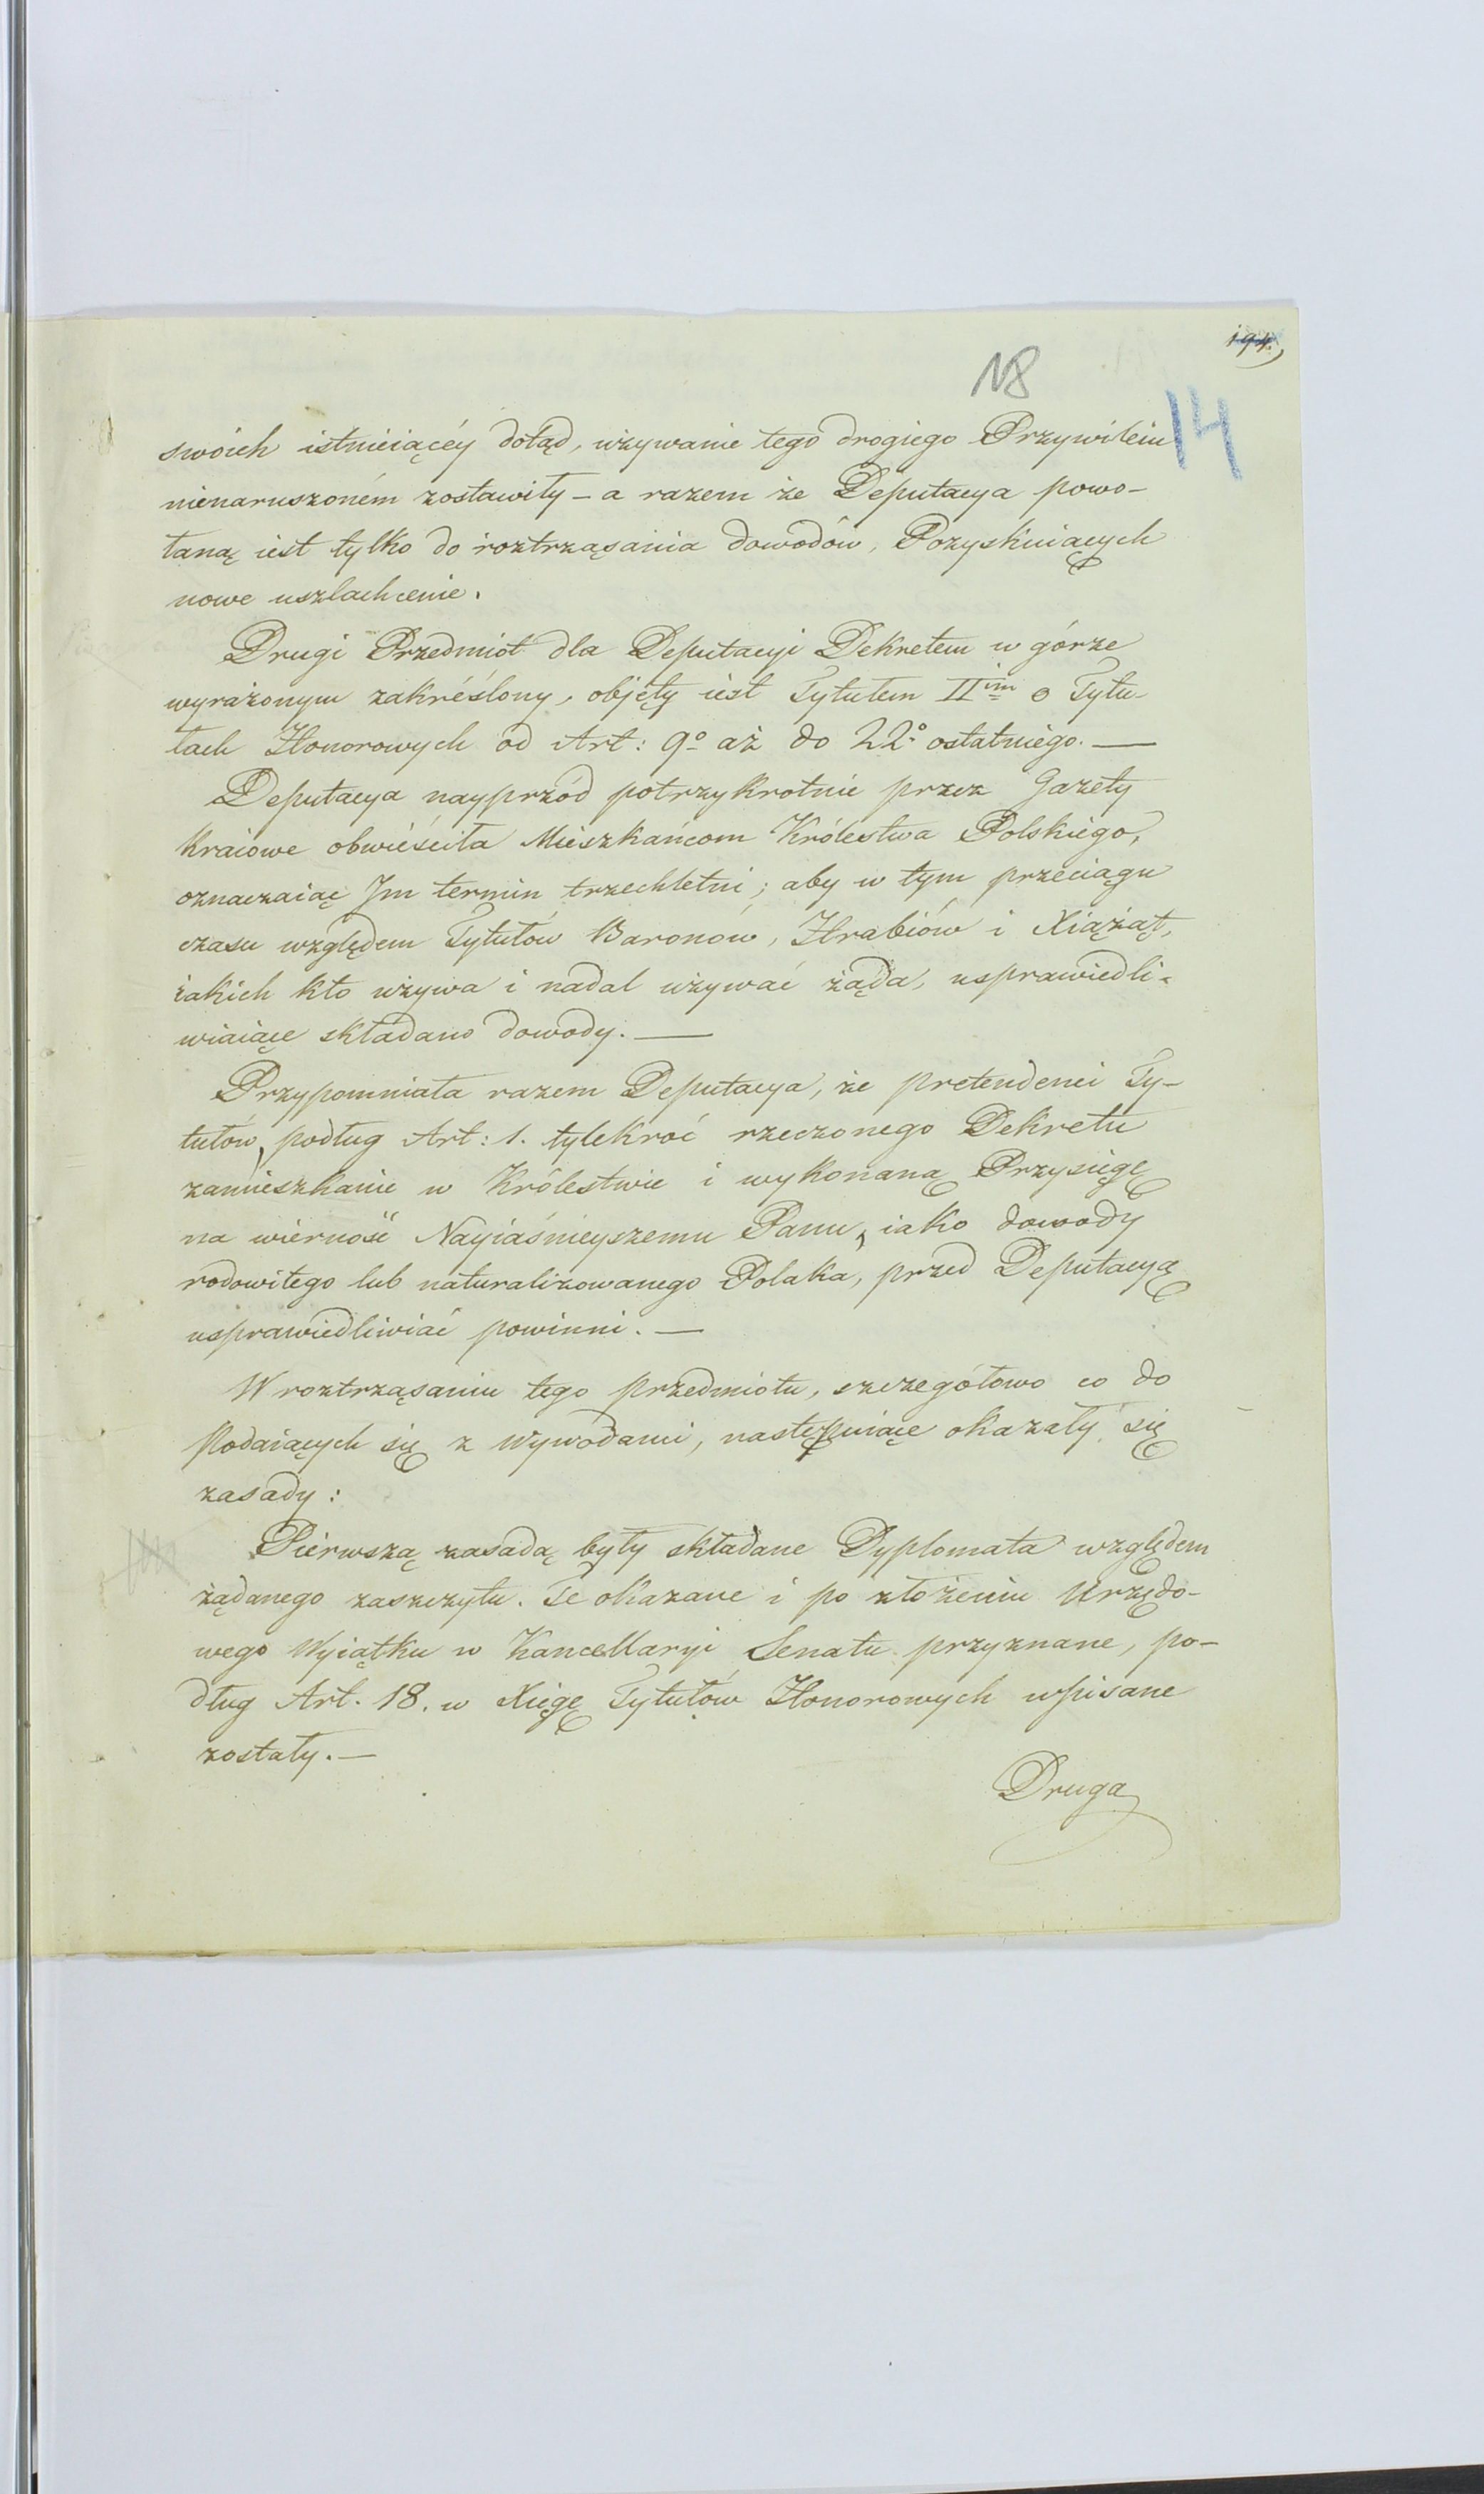 194.
18
14
swoich istnieiącéy dotąd, używanie tego drogiego Przywileiu
nienaruszoném zostawiły – a razem że Deputacya powo-
łaną iest tylko do roztrząsania dowodów, Pozyskuiących
nowe uszlachcenie.
Drugi Przedmiot dla Deputacyi Dekretem w górze
wyrażonym zakréślony, objęty iest Tytułem IIim o Tytu-
łach Honorowych od Art: 9o aż do 22o ostatniego. —
Deputacya nayprzód potrzykrotnie przez Gazety
Kraiowe obwieściła Mieszkańcom Królestwa Polskiego,
oznaczaiąc Jm termin trzechletni; aby w tym przeciągu
czasu względem Tytułów Baronów, Hrabiów i Xiążąt,
iakich kto używa i nadal używać żąda, usprawiedli-
wiaiące składano dowody. —
Przypomniała razem Deputacya, że pretendenci Ty-
tułów, podług Art: 1. tylekroć rzeczonego Dekretu
zamieszkanie w Królestwie i wykonaną Przysięgę
na wierność Nayiaśnieyszemu Panu, iako dowody
rodowitego lub naturalizowanego Polaka, przed Deputacyą
usprawiedliwiać powinni. —
W roztrząsaniu tego przedmiotu, szczegółowo co do
Podaiących się z Wywodami, następuiące okazały się
zasady:
Pierwszą zasadą były składane Dyplomata względem
żądanego zaszczytu. Te okazane i po złożeniu Urzędo-
wego Wyiątku w Kancellaryi Senatu przyznane, po-
dług Art. 18. w Xięgę Tytułów Honorowych wpisane
zostały. —
Druga